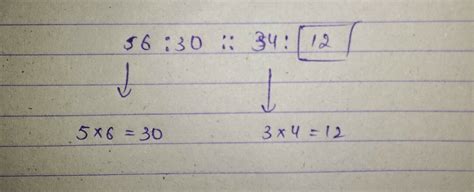 56 : 30 :: 34 : 12
5×6 = 30 3×4 = 12